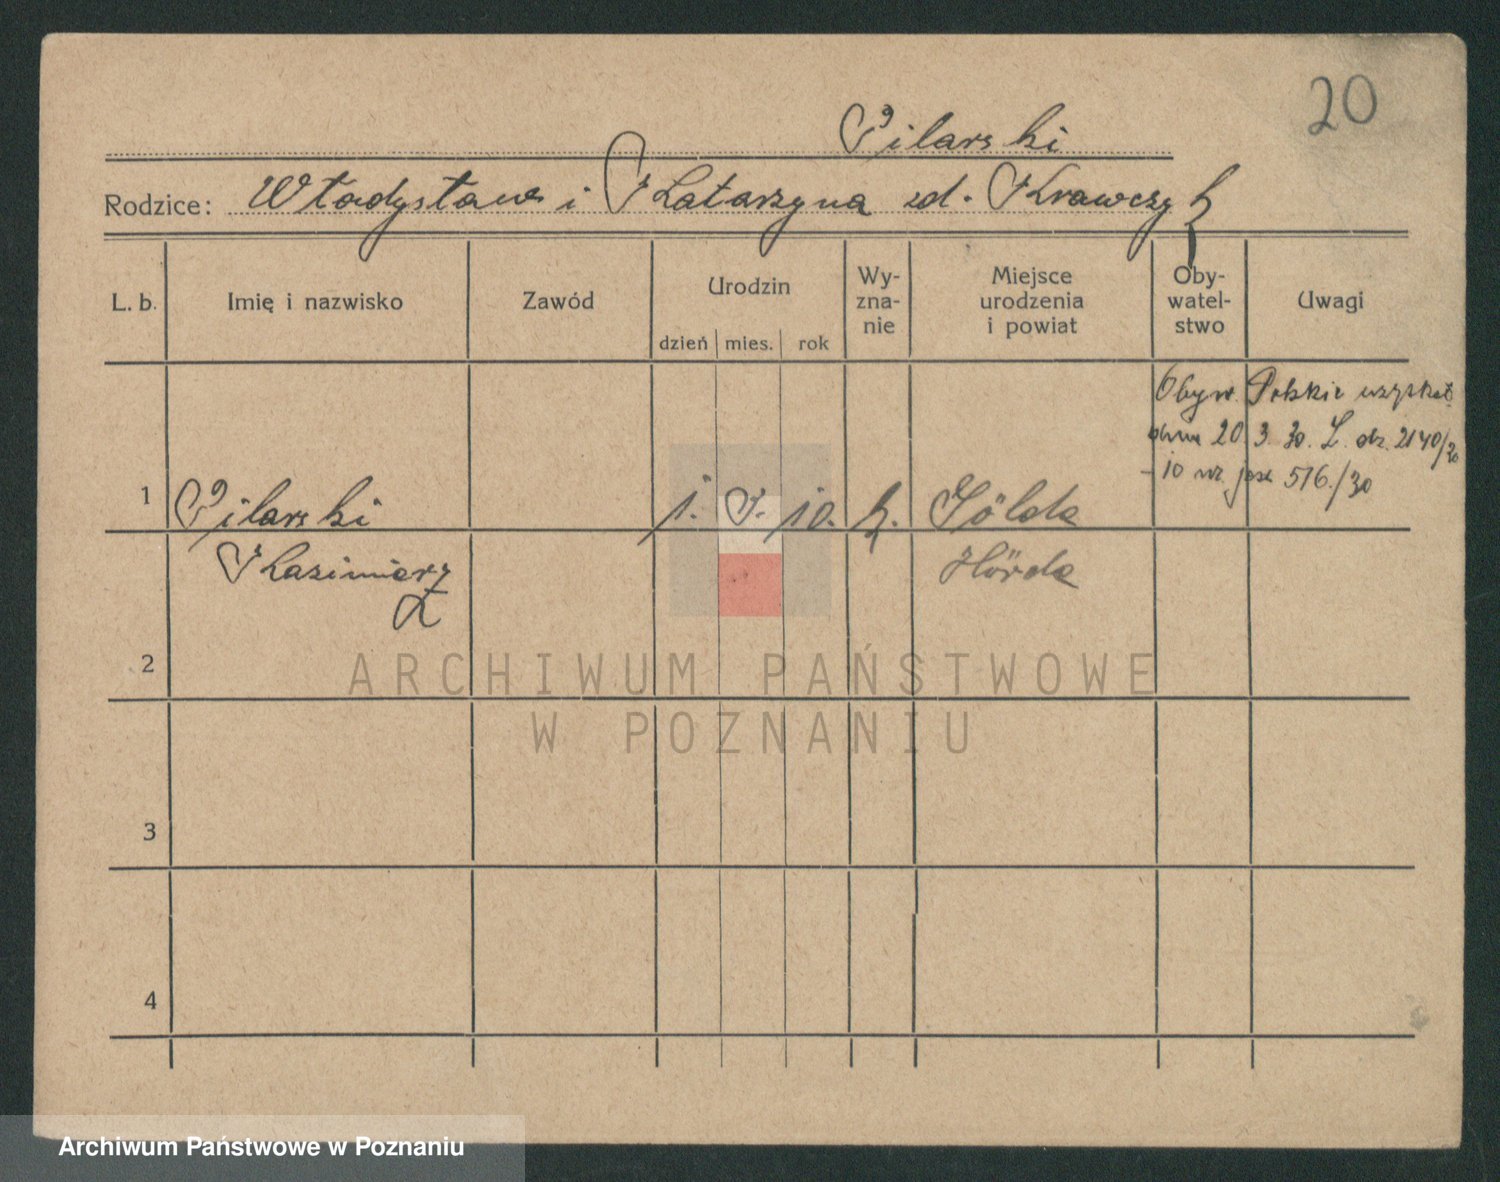 20
Pilarski
Rodzice: Władysław i Katarzyna zd. Krawczyk
L. b.
Imię i nazwisko
Zawód
Urodzin
dzień mies. rok
Wy-
zna-
nie
Miejsce
urodzenia
i powiat
Oby-
watel-
stwo
Uwagi
Obyw. Polskie uzyskał
dnia 20 3. 30. L. dz. 2140/30
10 nr. 516/30
1 Pilarski 1. 10. k. Sölde
Kazimierz Hörde
2
3
4
ARCHIWUM PAŃSTWOWE
W POZNANIU
Archiwum Państwowe w Poznaniu